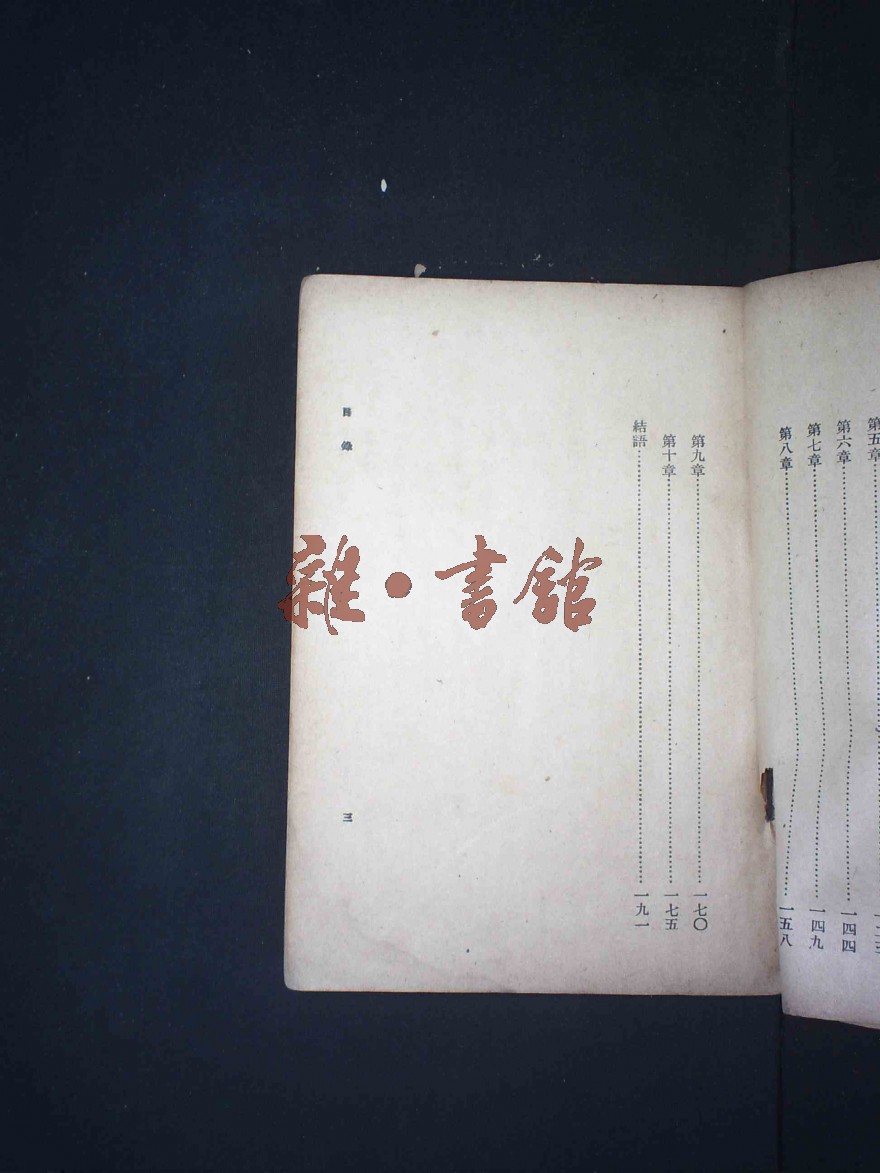 第五章
第六章……一四四
第七章……一四九
第八章……一五八
第九章……一七〇
第十章……一七五
結語……一九一
目錄
三
雜·書館